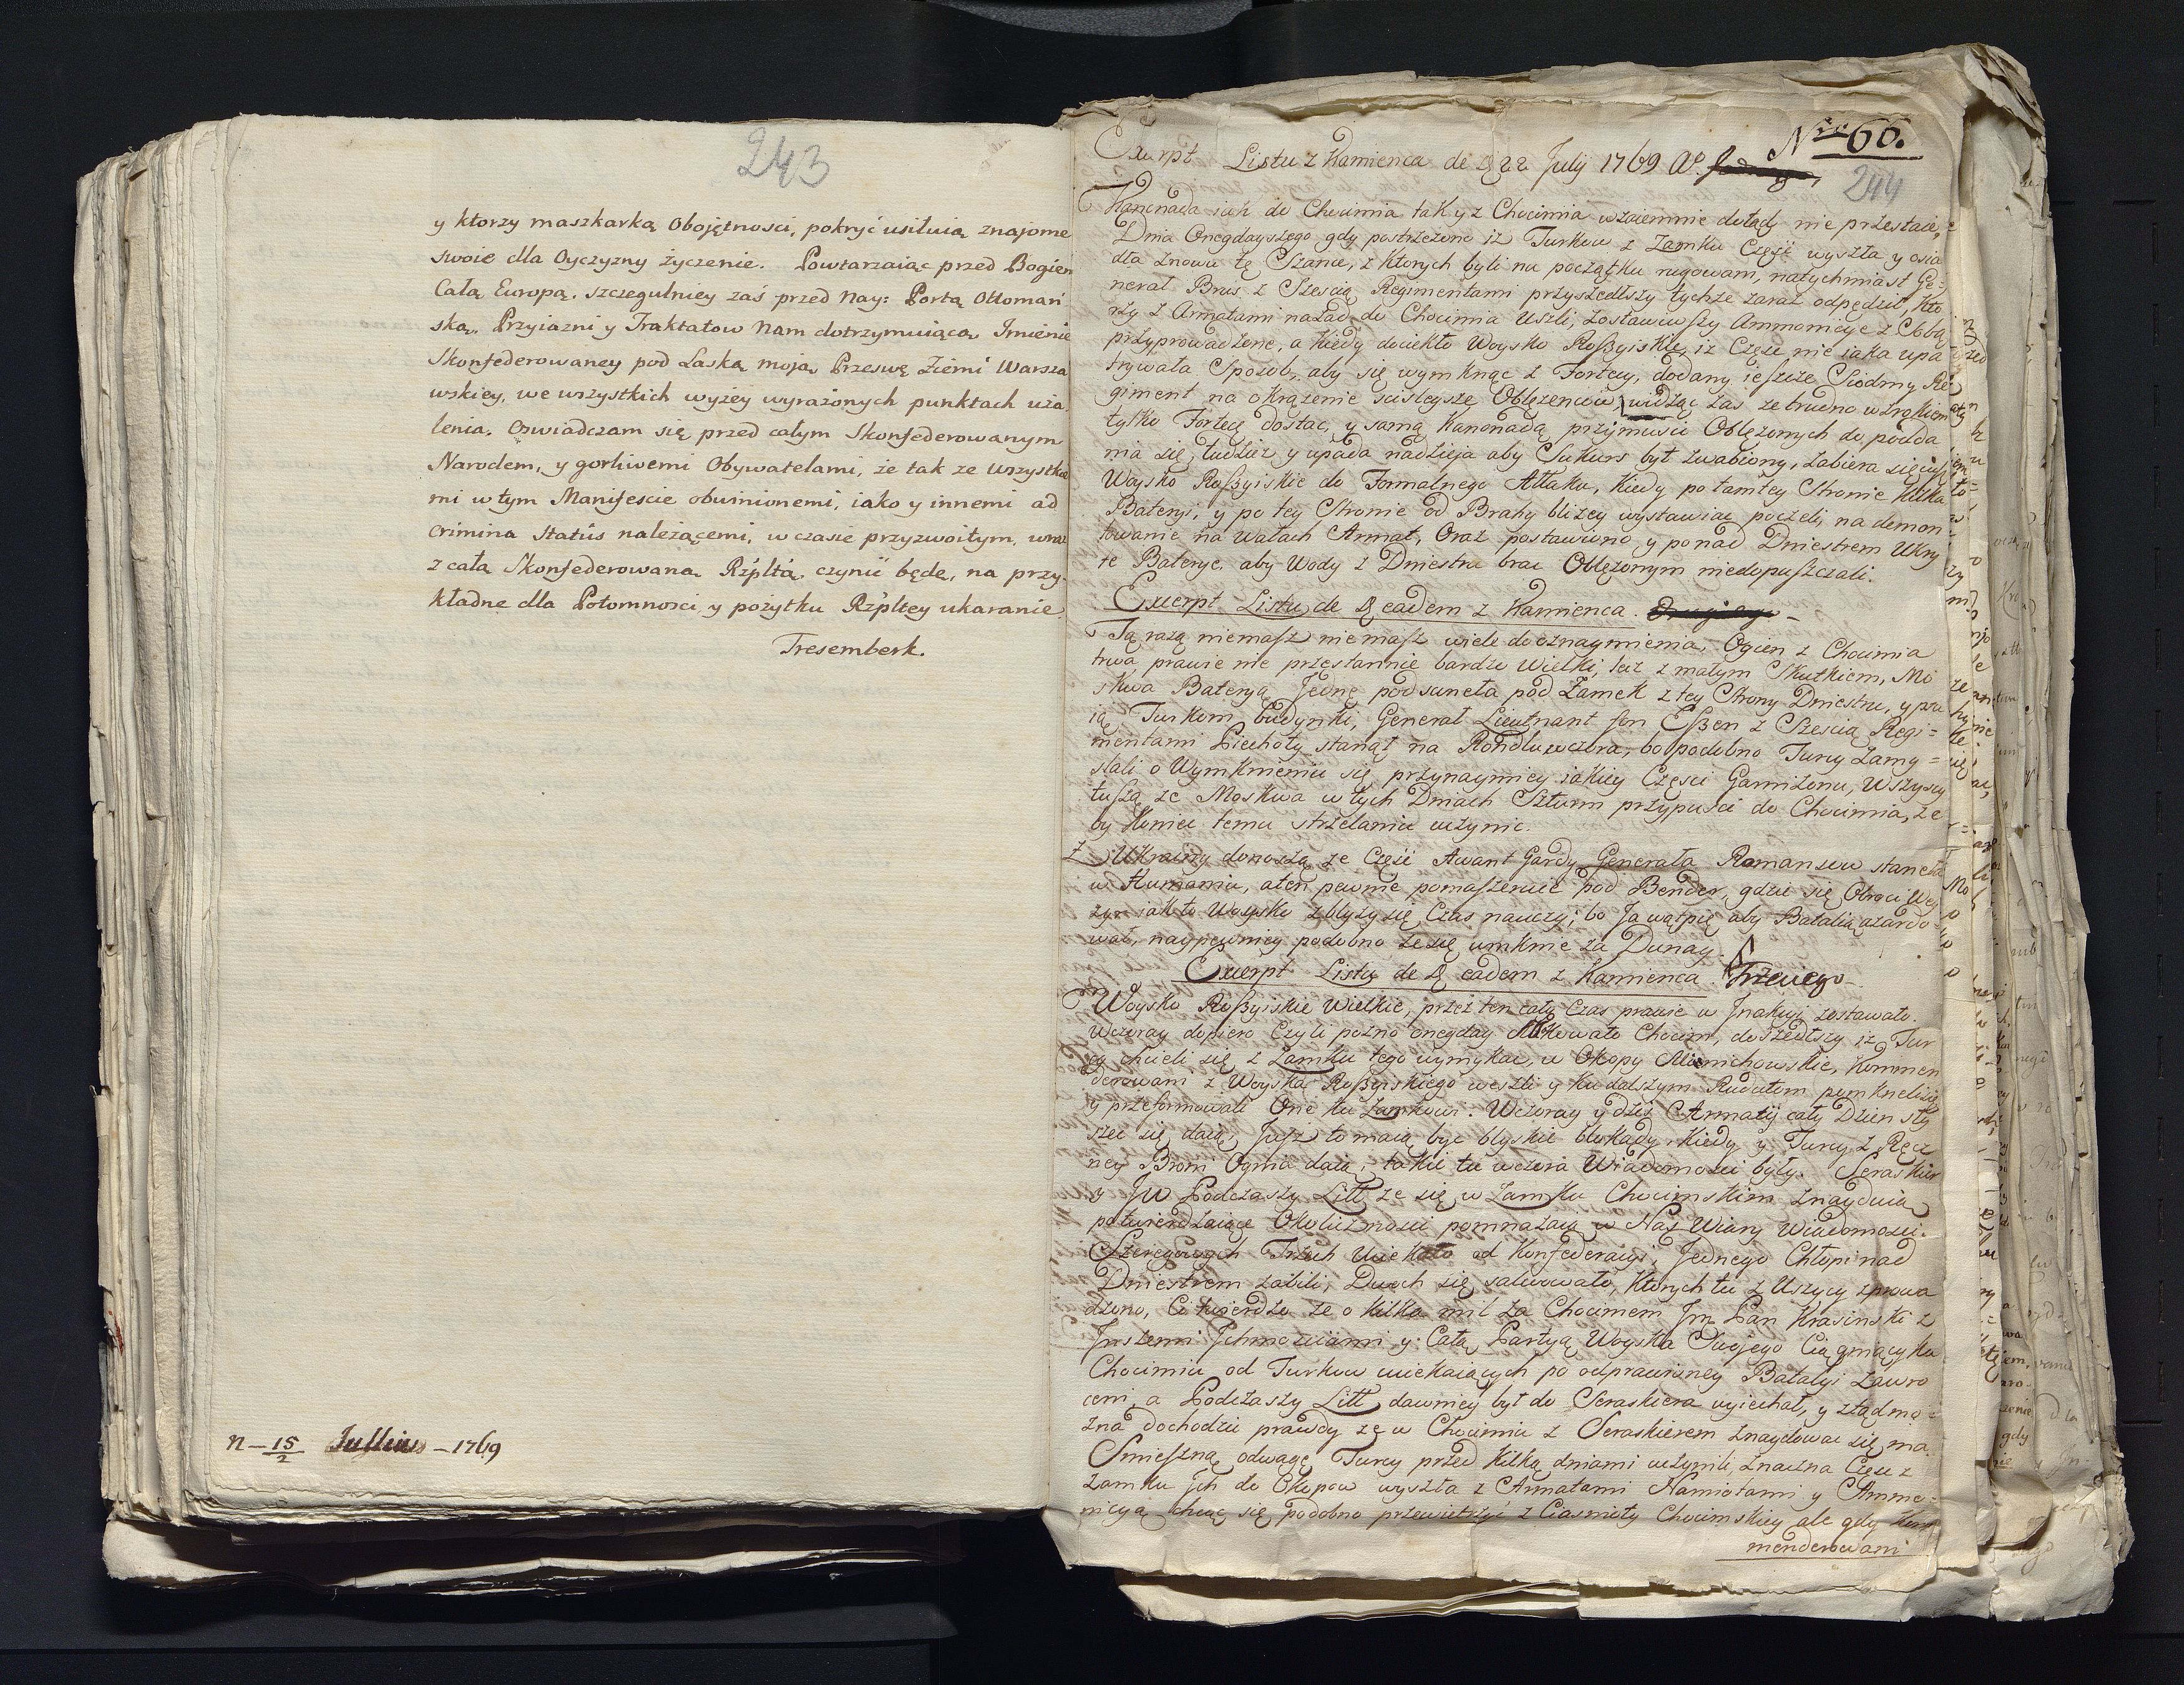 243
y ktorzy maszkarką Obojętnosci, pokryć usiłuią znajome
swoie dla Oyczyzny życzenie. Powtarzaiąc przed Bogiem
Całą Europą. szczegulniey zaś przed Nay: Portą Ottomań
ską. Przyiazni y Traktatow Nam dotrzymuiącą Imienie
Skonfederowaney pod Laską moją Przeswę Ziemi Warsza
wskiey, we wszystkich wyżey wyrażonych punktach uża
lenia. Oswiadczam się przed całym Skonfederowanym
Narodem, y gorliwemi Obywatelami, że tak ze wszystkie
mi w tym Manifescie obwinionemi, iako y innemi ad
crimina Statûs należącemi, w czasie przyzwoitym, wraz
z całą Skonfederowaną Rzpltą czynić będę, na przy-
kładne dla Potomnosci y pożytku Rzpltey ukaranie
Tresemberk.
n – 15/2 Jullius – 1769
Nro 66.
Exerpt Listu z Kamienca de D 22 July 1769 Ao
244
Kanonada iak do Chocimia tak y z Chocimia wzaiemnie dotądy nie przestaie,
Dnia Onegdayszego gdy postrzeżono iż Turkow z Zamku Część wyszła y osia
dła znowu te Szance, z ktorych byli na początku rugowani, natychmiast Ge=
nerał Brus z Szescią Regimentami przyszedłszy tychże zaraz odpędził, kto
rzy z Armatami nazad do Chocimia uszli, zostawiwszy Ammonicye z Sobą
przyprowadzone, a kiedy dociekło Woysko Roßyiskie, iż Częsc nie iaka upa
trywała Sposob, aby się wymknąc z Fortecy, dodany ieszcze Siodmy Re
giment na okrążenie scisleysze Oblężencow, widząc zas ze trudno wzrokiem
tylko Fortecę dostac, y samą Kanonadą przymusic Oblężonych do podda
nia się, tudziez y upada nadzieja aby Sukurs był zwabiony, zabiera się iuż
Woysko Roßyiskie do Formalnego Attaku, kiedy po tamtey Stronie kilka
Bateryi, y po tey Stronie od Brahy bliżey wystawiac poczeli, na demon
towanie na Wałach Armat, Oraz postawiono y ponad Dniestrem Ukry
te Baterye, aby Wody z Dniestru brac Oblężonym niedopuszczali.
Exerpt Listu de D eadem z Kamienca.
Tą razą niemasz niemasz wiele do oznaymienia, Ogien z Chocimia
trwa prawie nie przestannie bardzo Wielki, lecz z małym Skutkiem, Mo
skwa Bateryą Jednę podsuneła pod Zamek z tey Strony Dniestru, y psu
ią Turkom budynki, Generał Lieutnant fon Eßen z Szescią Regi=
mentami Piechoty stanął na Rondlu wczora, bo podobno Turcy zamy=
slali o Wymknieniu się przynaymniey iakiey Częsci Garnizonu, Wszyscy
tuszą ze Moskwa w tych Dniach Szturm przypusci do Chocimia, ze
by koniec temu strzelaniu uczynic.
Z Ukrainy donoszą ze Częsć Awant Gardy Generała Romansow staneła
w Humaniu, a ten pewnie pomaszeruie pod Bender, gdzie się Obroci We
zyr iak to Woysko zblyży się Czas nauczy; bo Ja wątpię aby Batalią azardo
wał, naypewniey podobno ze się umknie za Dunay.
Exerpt Listu de D eadem z Kamienca. Trzeciego
Woysko Roßyiskie Wielkie, przez ten cały Czas prawie w Jnakcyi zostawało.
Wczoray dopiero Czyli pozno onegday Attakowało Chocim, doszedłszy iż Tur
cy chcieli się z Zamku tego wymykac, w Okopy Minichowskie, Kommen
derowani z Woyska Roßyiskiego weszli y ku dalszym Redutom pomkneli się
y przeformowali One ku Zamkowi. Wczoray y dzis Armaty cały Dzien sły
szec się daią, Jusz to maią byc blyskie blokady kiedy y Turcy z Ręcz
ney Broni Ognia daią; takie tu wczora Wiadomosci były. Seraskier
y JW Podczaszy Litt ze się w Zamku Chocimskim znayduią
potwierdzaiące Okolicznosci pomnażaią w Nas Wiary Wiadomosci.
Szeregowych Trzech uciekało od Konfederacyi, Jednego Chłopi nad
Dniestrem zabili, Dwoch się salwowało, ktorych tu z Uszycy zprowa
dzono, Ci twierdzą ze o kilka mil za Chocimem Jm Pan Krasinski z
Jnszemi Jchmosciami y Całą Partyą Woyska Swojego Ciągniący ku
Chocimiu od Turkow uciekaiących po odprawioney Batalyi zawro
ceni, a Podczaszy Litt dawniey był do Seraskiera wyiechał, y ztąd mo=
zna dochodzic prawdy ze w Chocimiu z Seraskierem znaydowac się ma.
Smieszną odwagę Turcy przed kilką dniami uczynili, znaczna Częsc z
Zamku Jch do Okopow wyszła z Armatami Namiotami y Ammo=
nicyą chcąc się podobno przewietrzyć z Ciasnoty Chocimskiey ale gdy Kom
menderowani